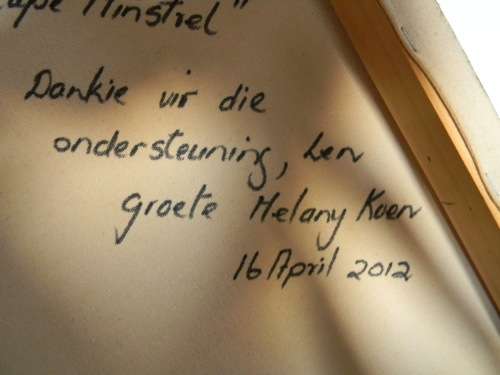 Cape Minstrel"
Dankie vir die
ondersteuning, Len
Groete Melany Koen
16 April 2012